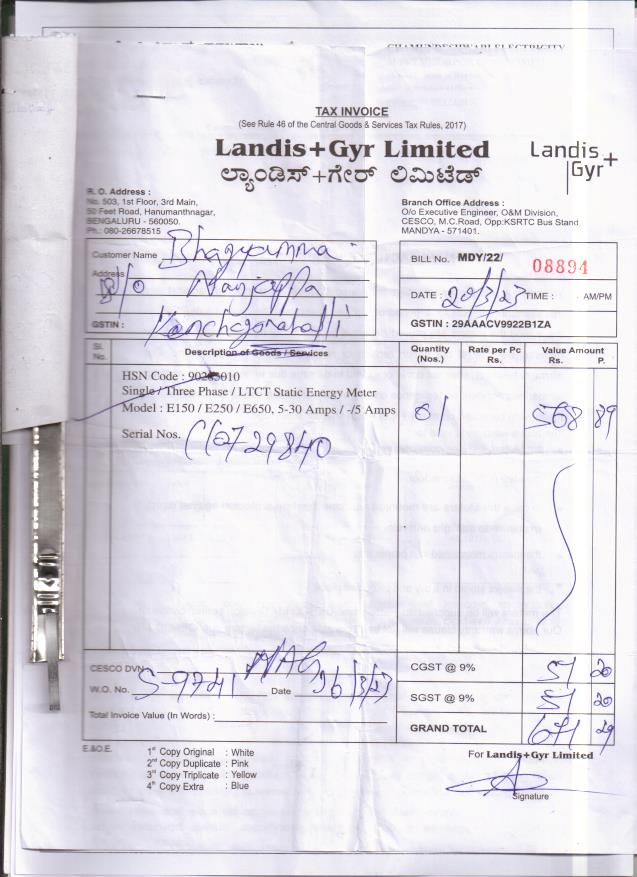 CHAMUNDESHWARI ELECTRICITY
TAX INVOICE
(See Rule 46 of the Central Goods & Services Tax Rules, 2017)
Landis+Gyr Limited
ಲ್ಯಾಂಡಿಸ್+ಗೇರ್ ಲಿಮಿಟೆಡ್
Landis+
Gyr
R. O. Address :
No. 503, 1st Floor, 3rd Main,
50 Feet Road, Hanumanthnagar,
BENGALURU - 560050.
Ph.: 080-26678515
Branch Office Address :
O/o Executive Engineer, O&M Division,
CESCO, M.C.Road, Opp:KSRTC Bus Stand
MANDYA - 571401.
Customer Name Bhagyamma
Address
Nanjappa
GSTIN :
BILL No. MDY/22/ 08894
DATE : 20/3/23 TIME : AM/PM
GSTIN : 29AAACV9922B1ZA
Sl. No. Description of Goods / Services Quantity (Nos.) Rate per Pc Rs. Value Amount Rs. P.
HSN Code : 90285010
Single / Three Phase / LTCT Static Energy Meter
Model : E150 / E250 / E650, 5-30 Amps / -/5 Amps 01 568 89
Serial Nos.
CESCO DVN
W.O. No. S-9741 Date
Total Invoice Value (In Words) :
CGST @ 9% 51 20
SGST @ 9% 51 20
GRAND TOTAL 671 29
E.&O.E.
1st Copy Original : White
2nd Copy Duplicate : Pink
3rd Copy Triplicate : Yellow
4th Copy Extra : Blue
For Landis+Gyr Limited
Signature